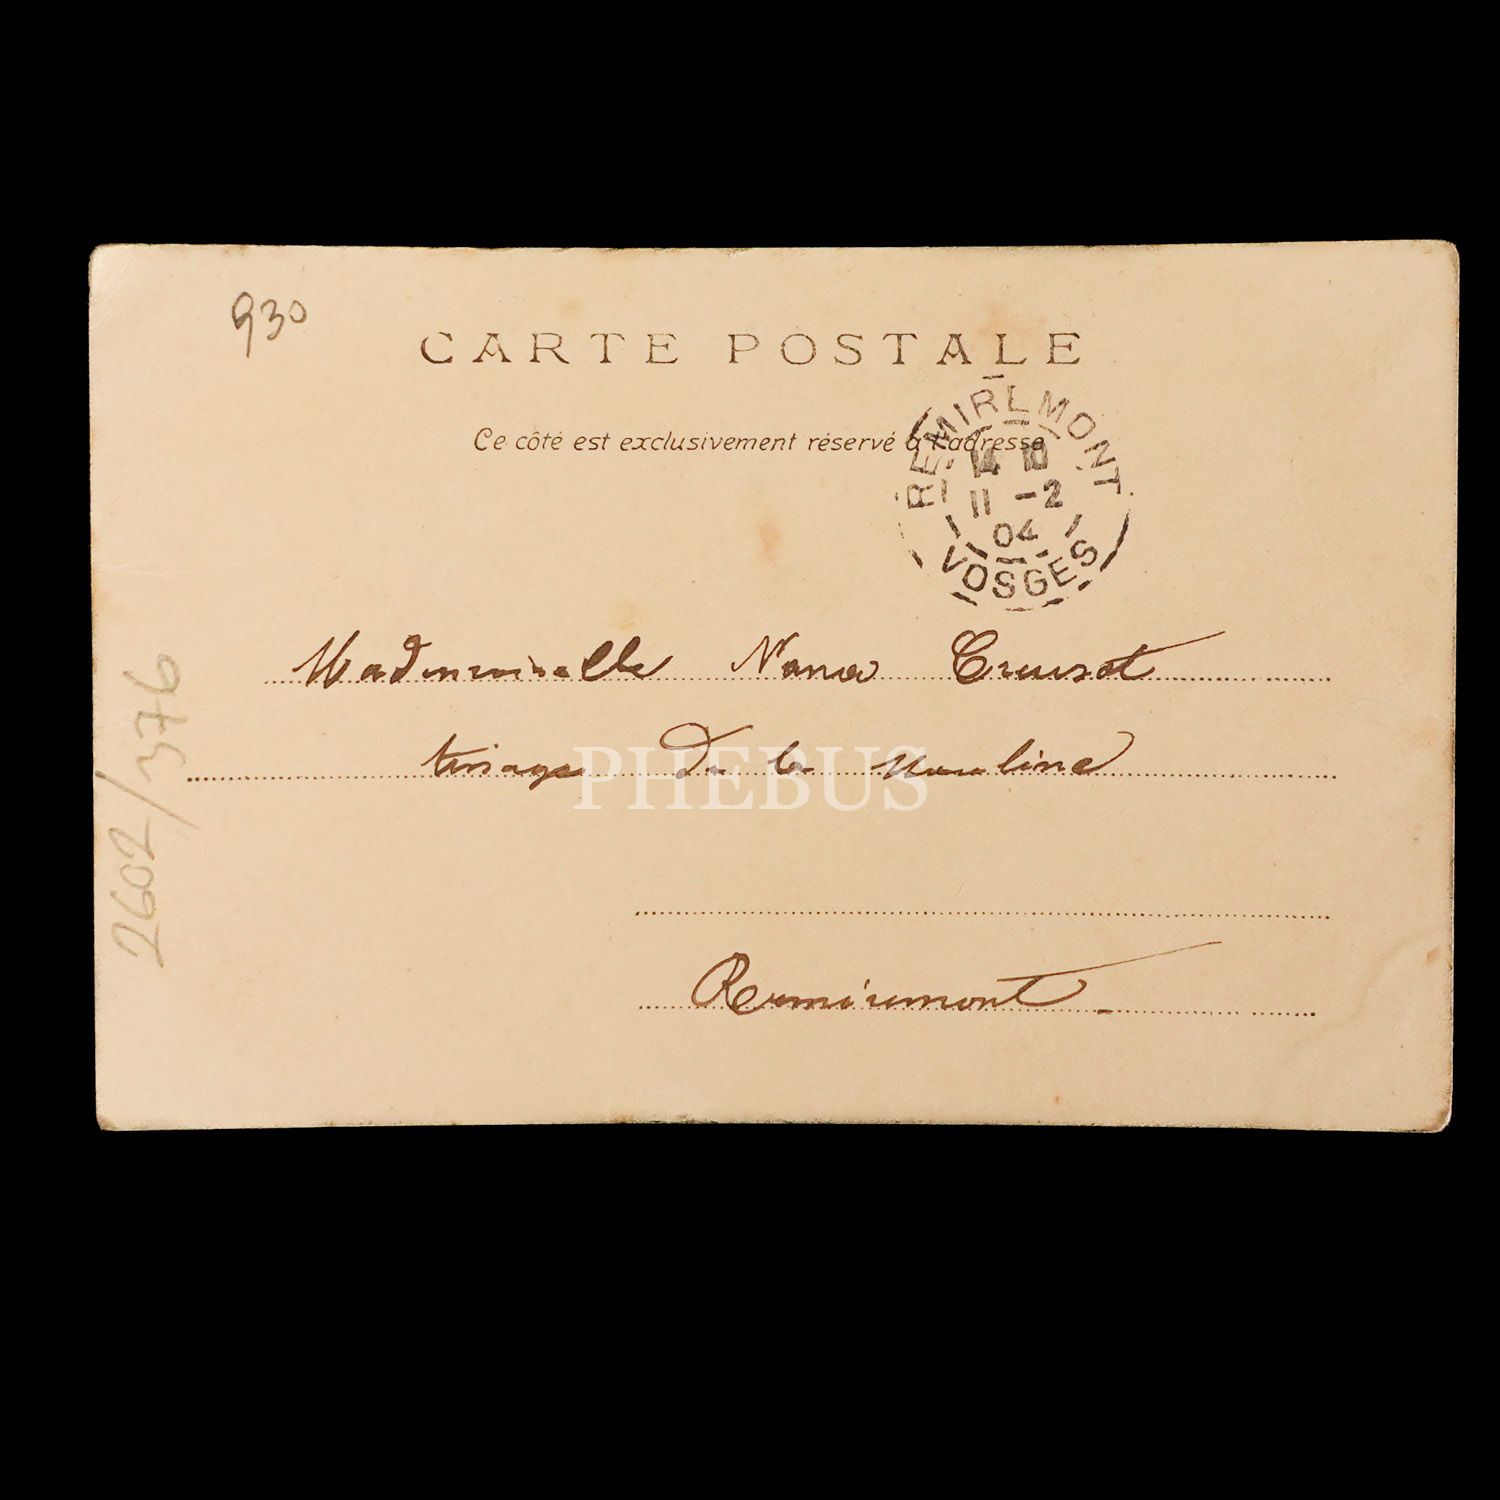 930
CARTE POSTALE
Ce côté est exclusivement réservé à l'adresse
REMIREMONT
11 -2
04
VOSGES
Mademoiselle Nana Creuset
tissage de la Mouline
PHEBUS
Remiremont
2602/376